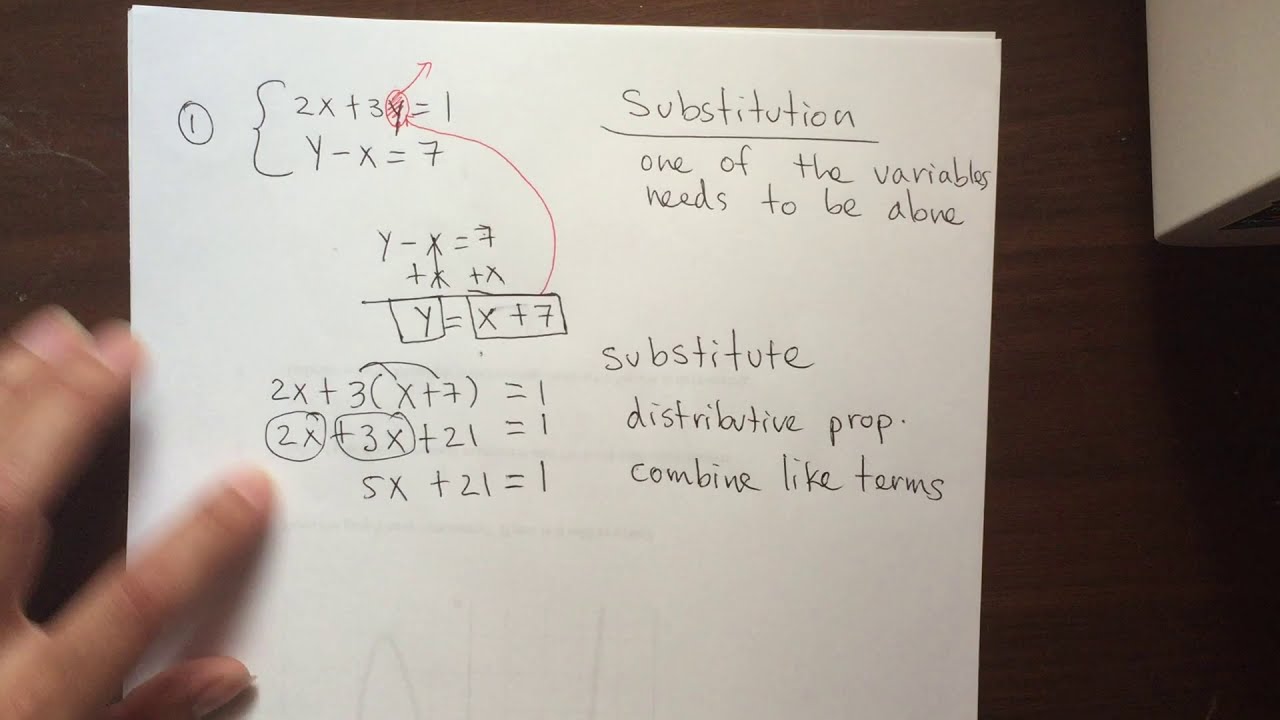 ① 2x + 3y = 1
y - x = 7
Substitution
one of the variables
needs to be alone
y - x = 7
+x +x
y = x + 7
substitute
2x + 3(x+7) = 1
distributive prop.
2x + 3x + 21 = 1
combine like terms
5x + 21 = 1